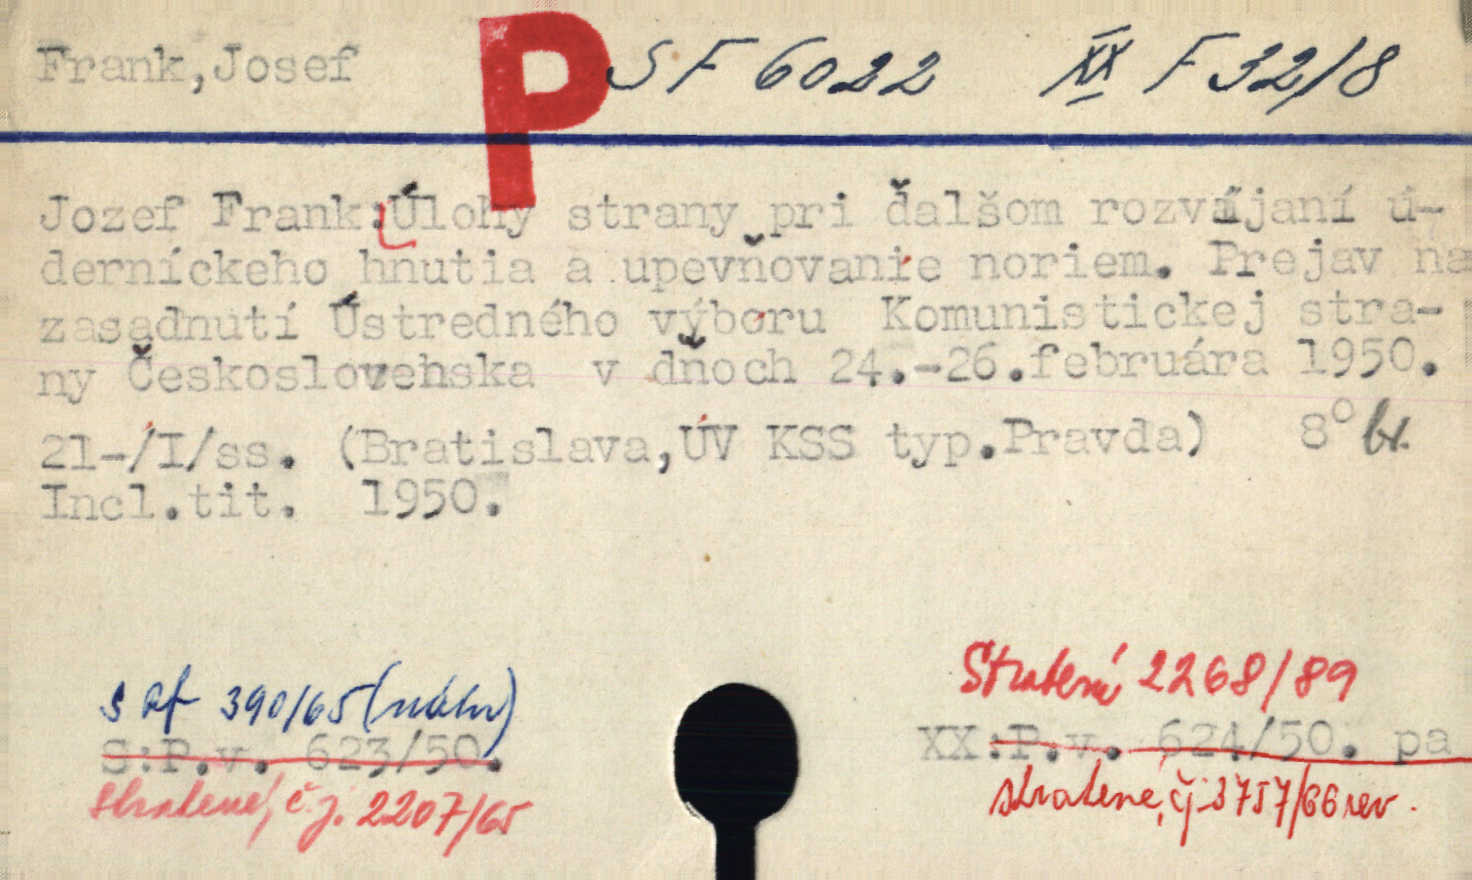 Frank,Josef P SF 6022 XX F 32/8
Jozef Frank:Úlohy strany pri ďalšom rozvíjaní ú-
derníckeho hnutia a upevňovanie noriem. Prejav na
zasadnutí Ústredného výboru Komunistickej stra-
ny Československa v dňoch 24.-26.februára 1950.
21-/I/ss. (Bratislava,ÚV KSS typ.Pravda) 8° br.
Incl.tit. 1950.
S Rf 390/65 (náhr)
S:P.v. 623/50.
stratené, č.j. 2207/65
Stratené 2268/89
XX:P.v. 624/50. pa
stratené, čj. 3757/66 rev.